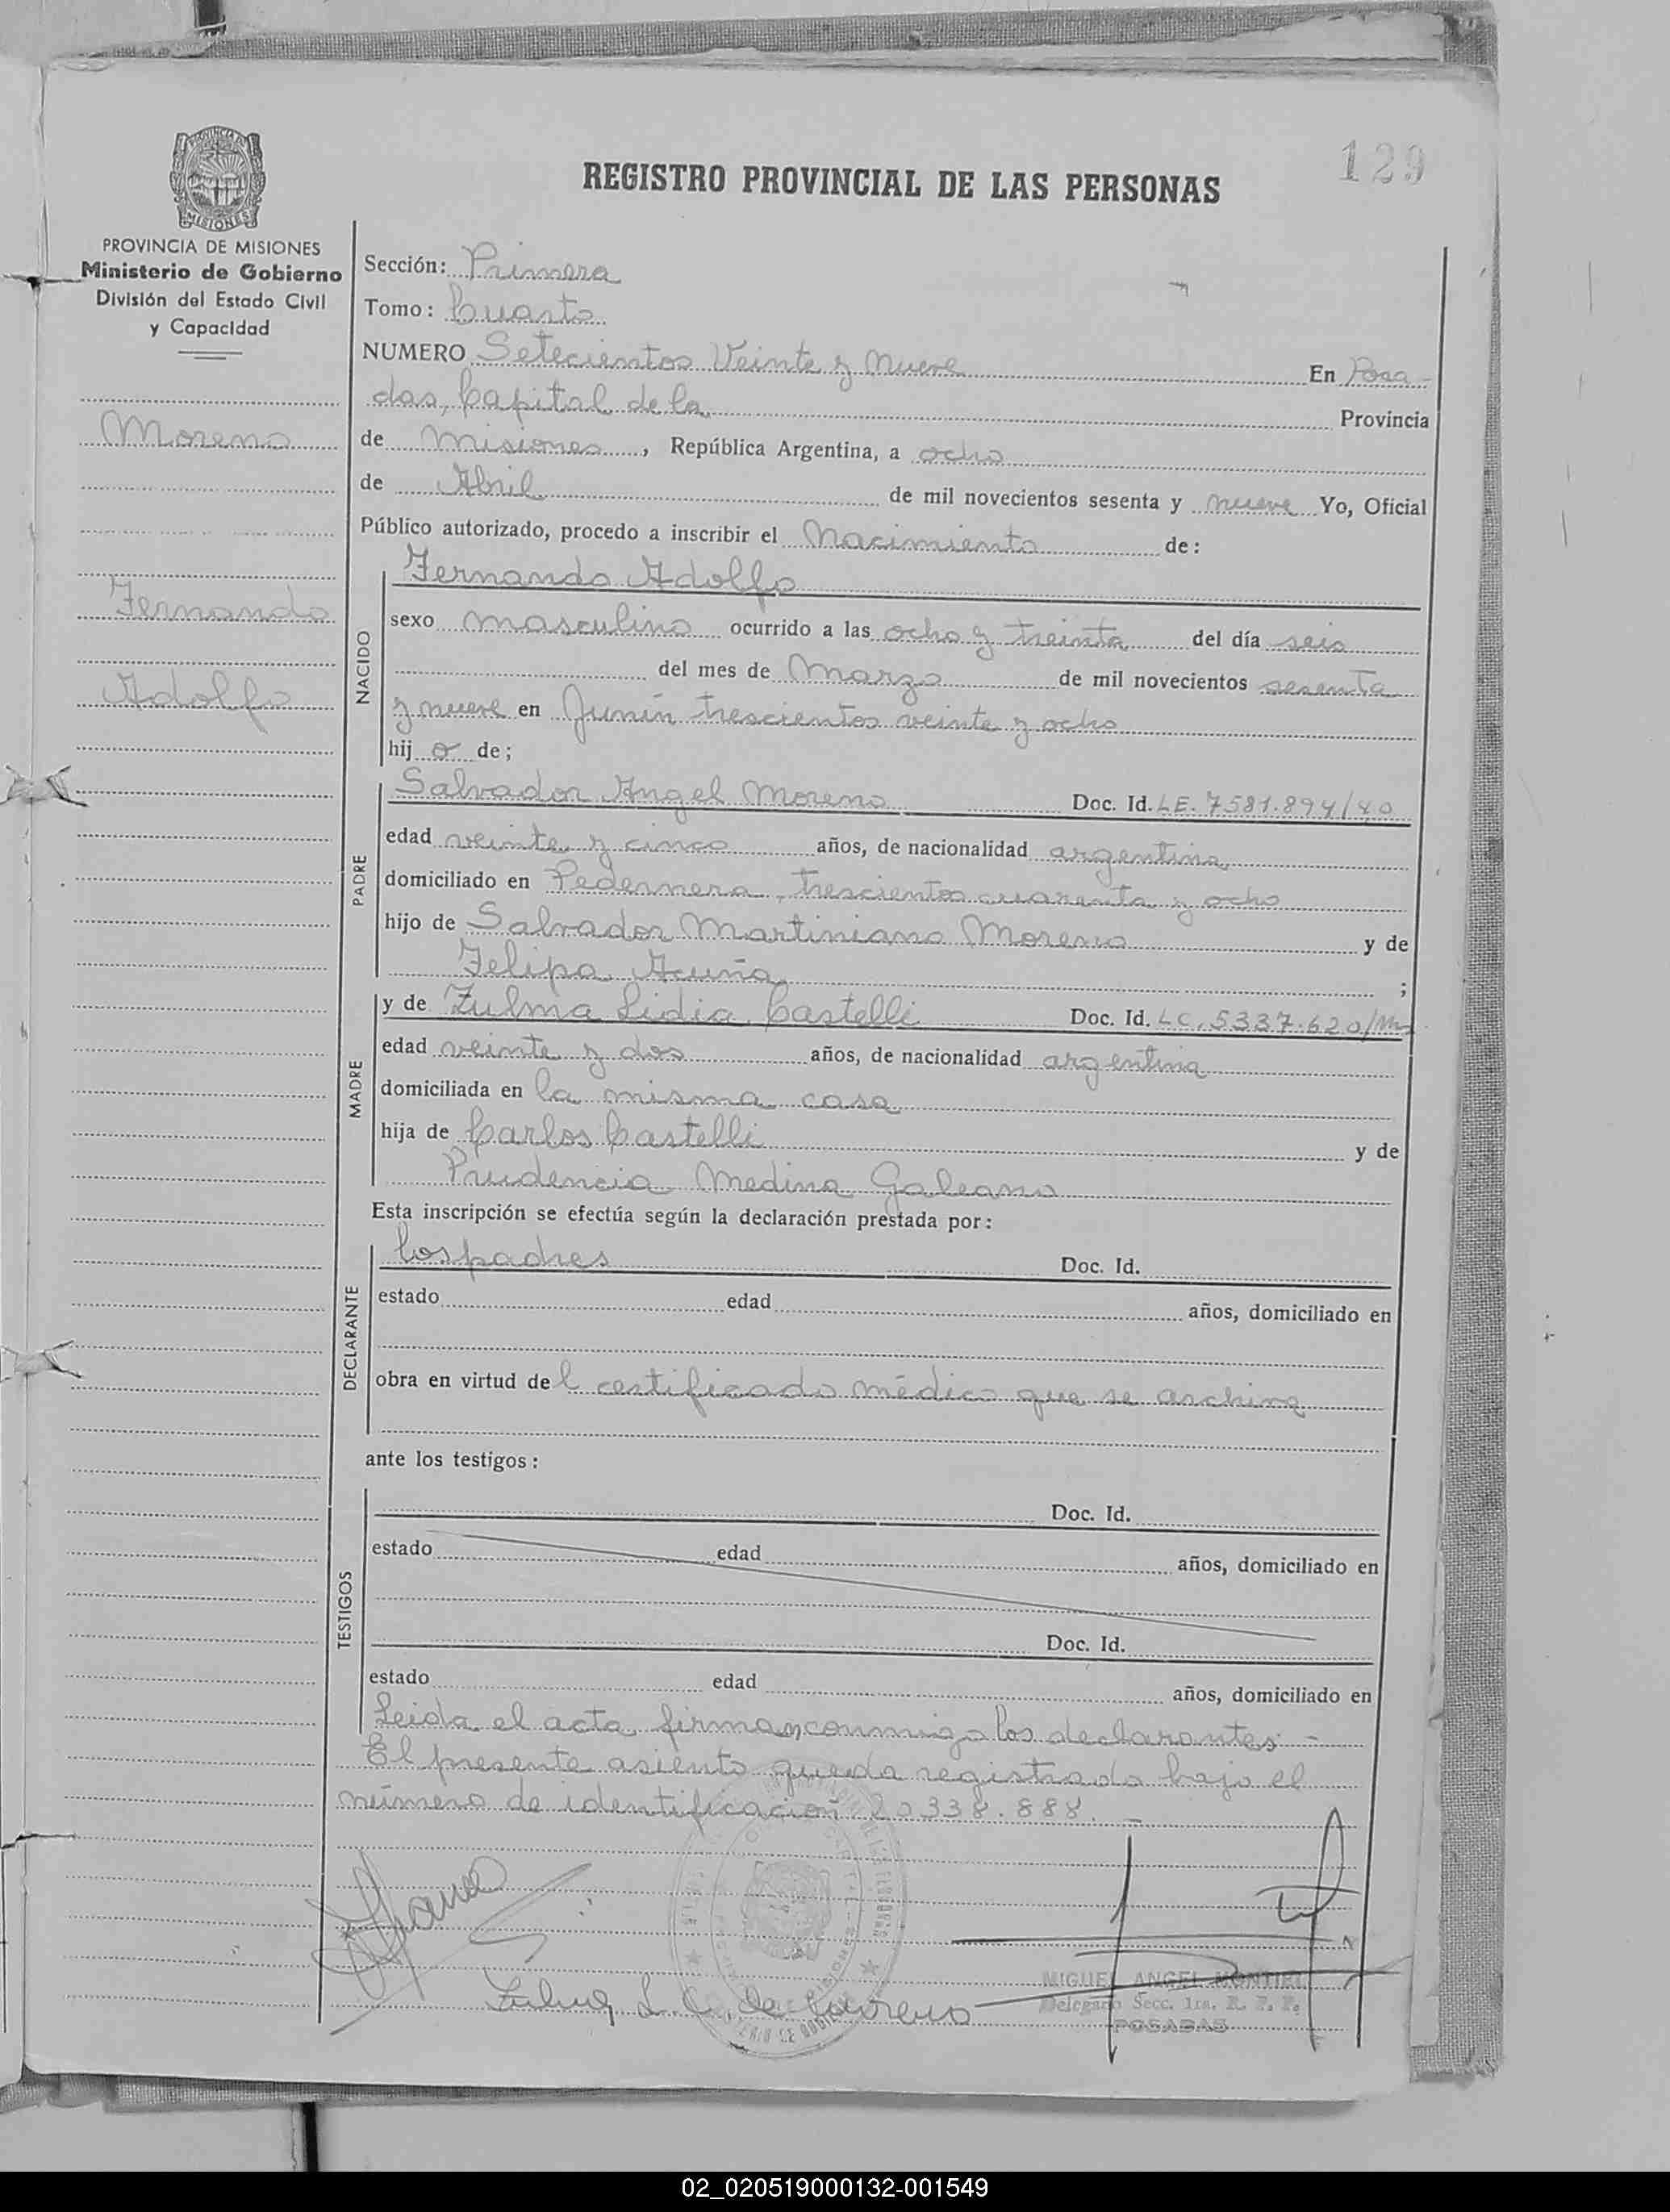 129
REGISTRO PROVINCIAL DE LAS PERSONAS
PROVINCIA DE MISIONES
Ministerio de Gobierno
División del Estado Civil
y Capacidad
Moreno
Fernando
Adolfo
Sección: Primera
Tomo: Cuarto
NUMERO Setecientos Veinte y Nueve En Posa-
das, Capital de la Provincia
de Misiones, República Argentina, a ocho
de Abril de mil novecientos sesenta y nueve Yo, Oficial
Público autorizado, procedo a inscribir el Nacimiento de:
NACIDO
Fernando Adolfo
sexo masculino ocurrido a las ocho y treinta del día seis
del mes de Marzo de mil novecientos sesenta
y nueve en Junín trescientos veinte y ocho
hij o de;
PADRE
Salvador Angel Moreno Doc. Id. LE. 7581.894/40
edad veinte y cinco años, de nacionalidad argentina
domiciliado en Pedernera, trescientos cuarenta y ocho
hijo de Salvador Martiniano Moreno y de
Felipa Acuña ;
MADRE
y de Zulma Lidia Castelli Doc. Id. LC. 5337.620/Ms
edad veinte y dos años, de nacionalidad argentina
domiciliada en la misma casa
hija de Carlos Castelli y de
Prudencia Medina Galeano
Esta inscripción se efectúa según la declaración prestada por:
DECLARANTE
los padres Doc. Id.
estado edad años, domiciliado en
obra en virtud del certificado médico que se archiva
ante los testigos:
TESTIGOS
Doc. Id.
estado edad años, domiciliado en
Doc. Id.
estado edad años, domiciliado en
Leida el acta, firman conmigo los declarantes. -
El presente asiento queda registrado bajo el
número de identificación 20338.888. -
Zulma L. C. de Moreno
MIGUEL ANGEL MONTIEL
Delegado Secc. 1ra. R. P. P.
POSADAS
02_020519000132-001549